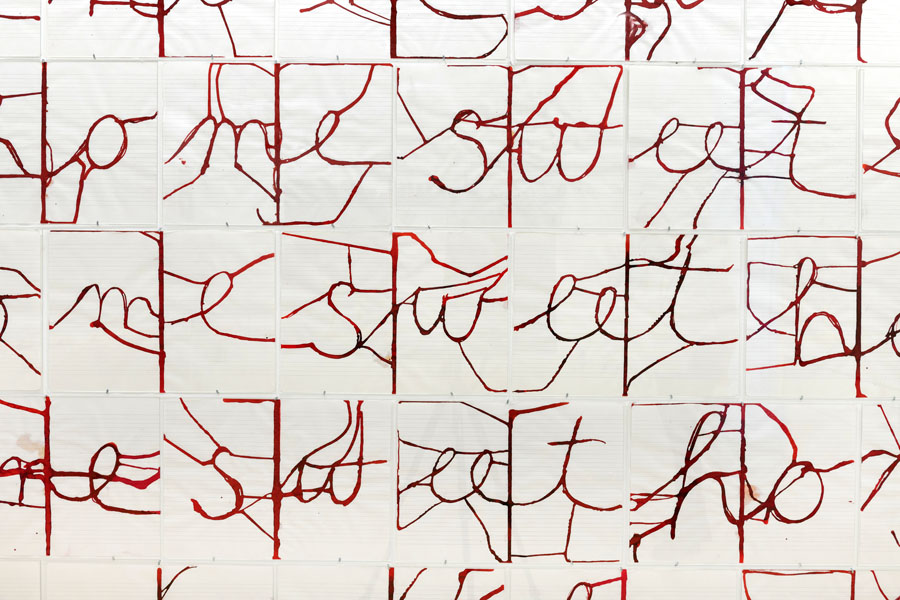 ho me sw eet
me sw eet ho
me sw eet ho